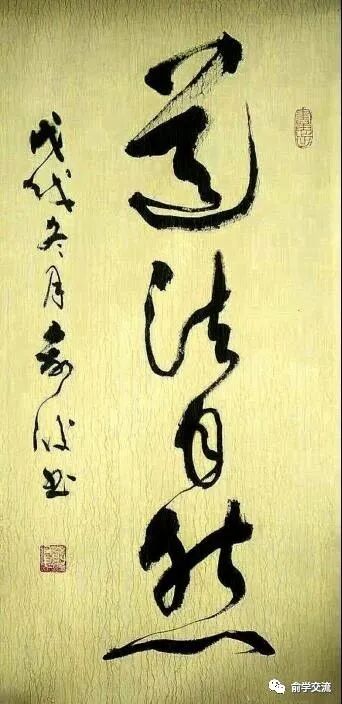 道法自然
戊戌冬月俞波书
俞学交流